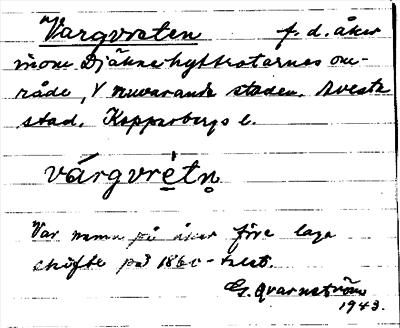 Vargvreten f. d. åker
inom Djäknehyttetäternas om-
råde, V nuvarande staden. Avesta
stad. Kopparbergs l.
várgvrètn
Var namn på åker före laga
skifte på 1860-talet.
G. Qvarnström
1943.